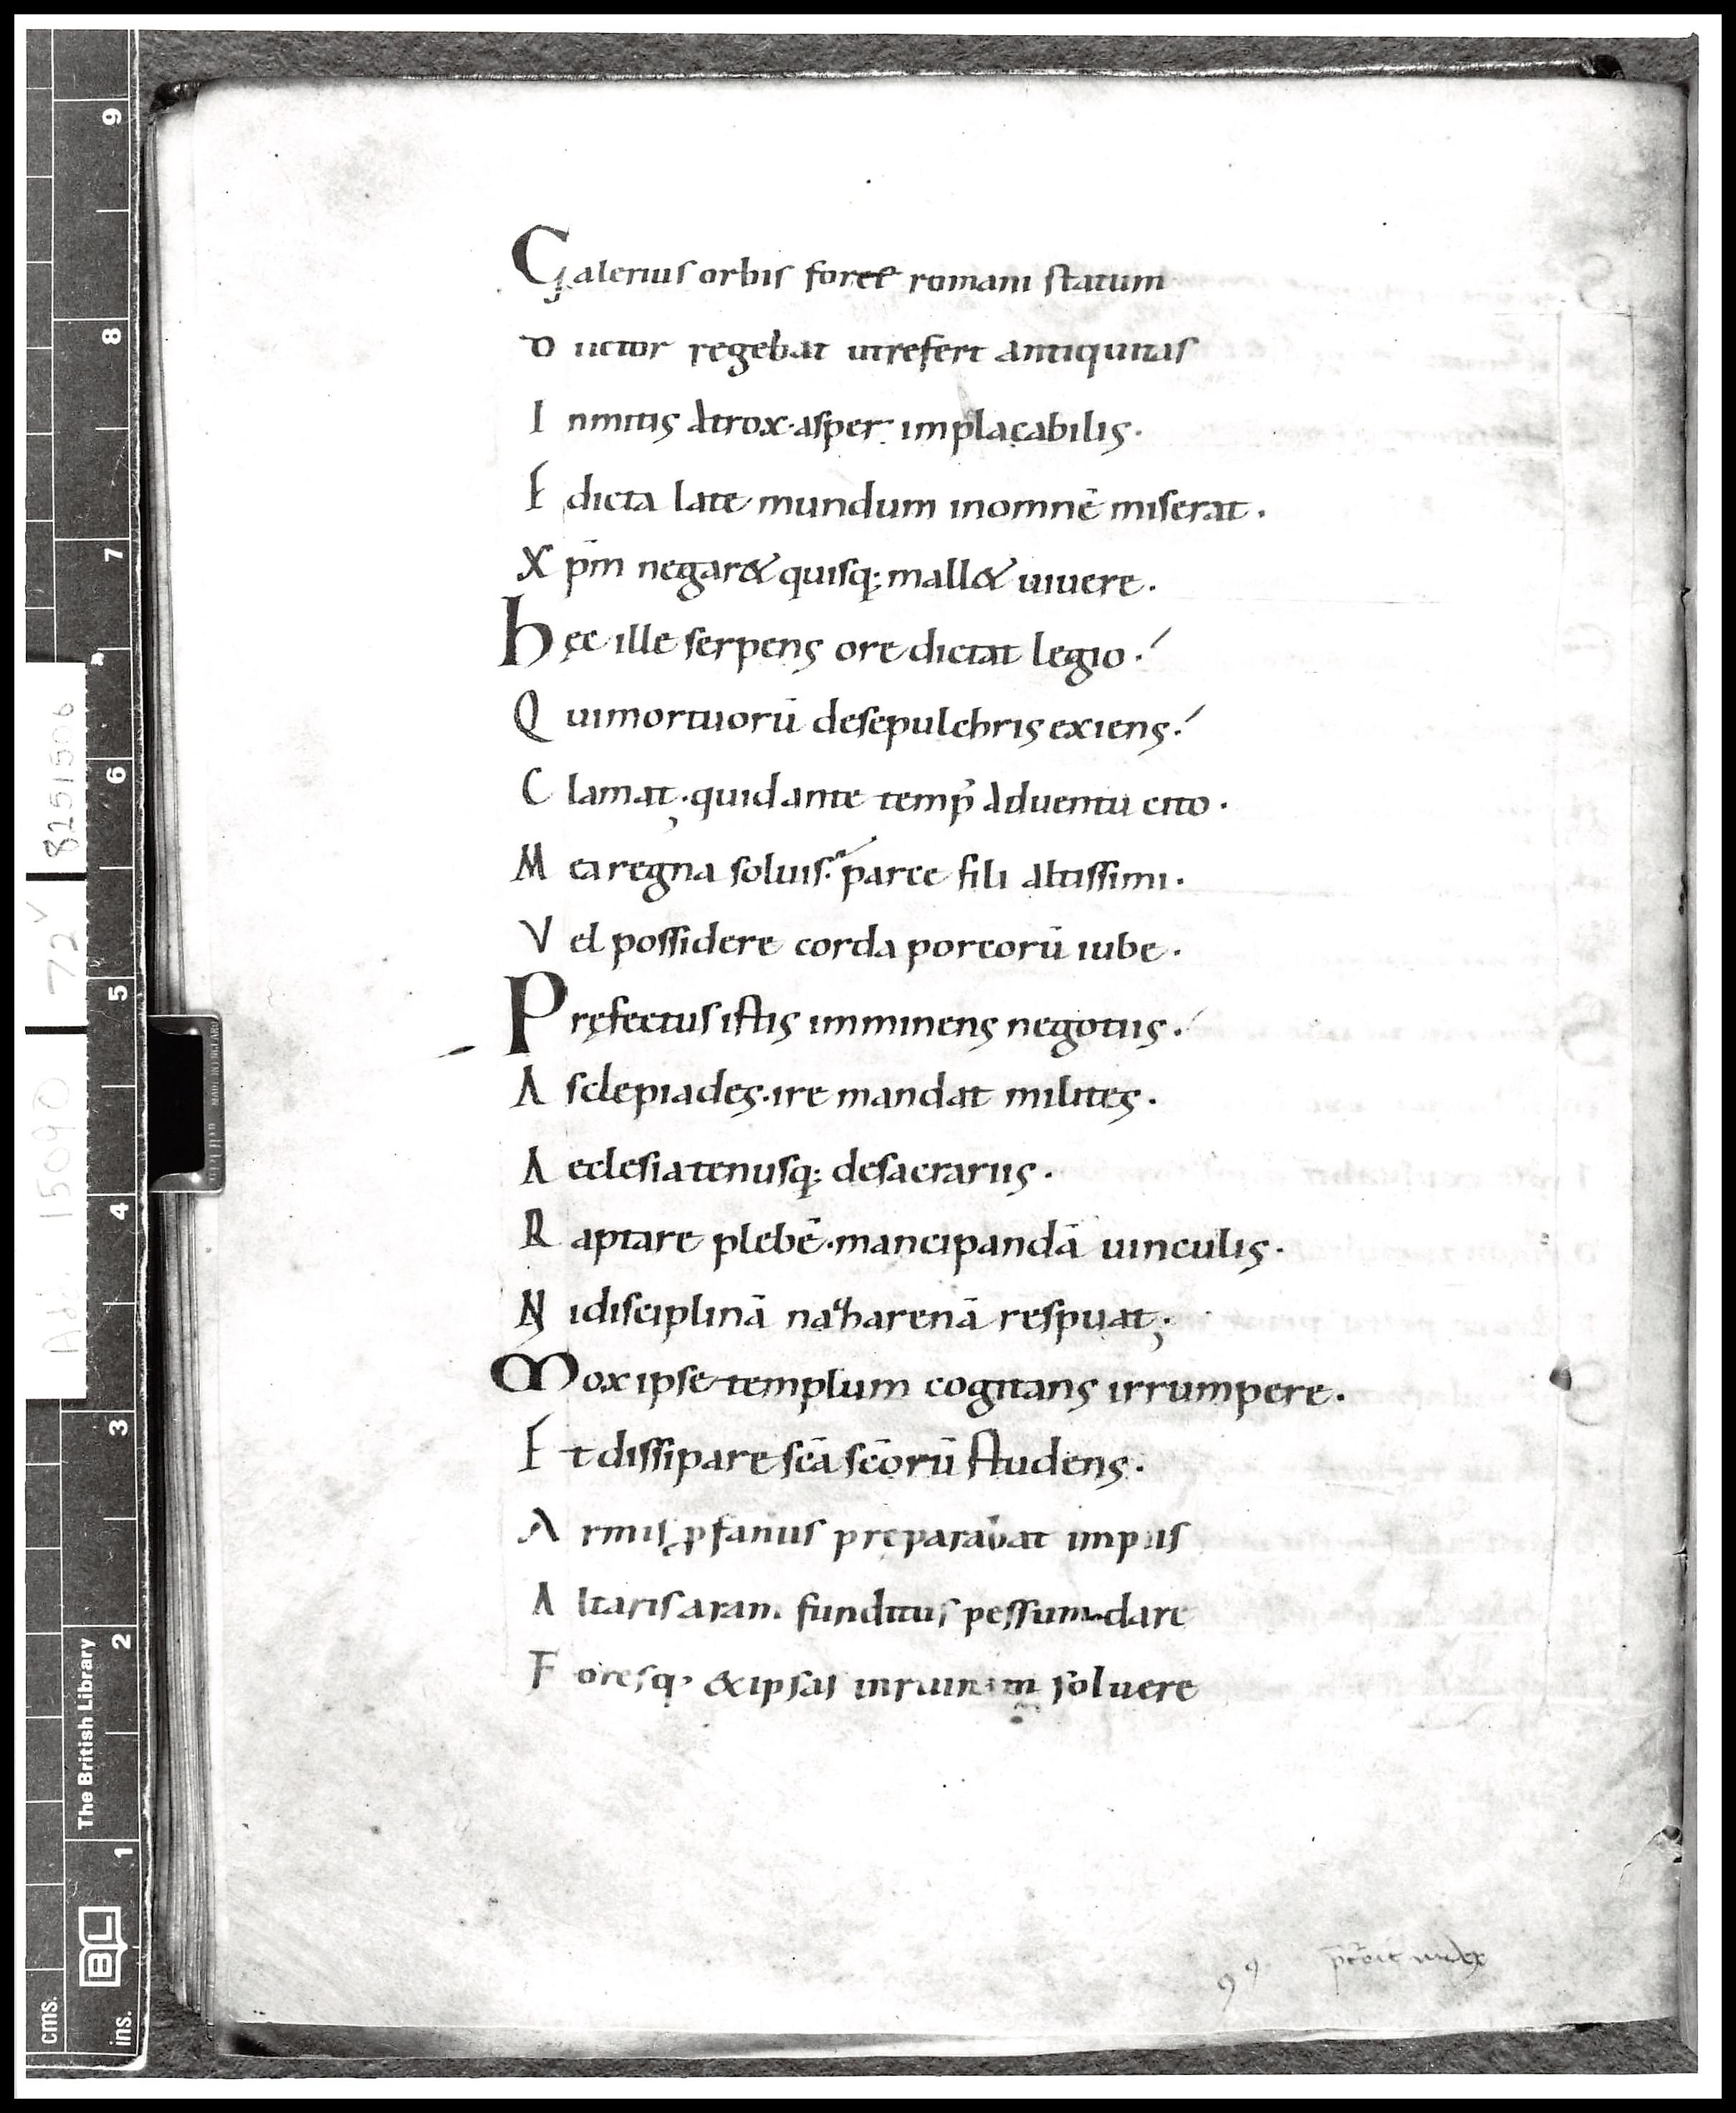 Galerius orbis foret romani statum
Ductor regebat utrefert antiquitas
Inmitis atrox·asper implacabilis·
Edicta late mundum inomnē miserat·
Xp̄m negar& quisq; mall& uiuere·
hęc ille serpens ore dictat legio·
Quimortuorū desepulchris exiens·
Clamat·quid ante temp̄ aduentu cito·
Mea regna soluis· parce fili altissimi·
Vel possidere corda porcorū iube·
Pręfectus istis imminens negotiis·
Asclepiades·ire mandat milites·
Aecclesia tenusq; desacrariis·
Raptare plebē·mancipandā uinculis·
Ni disciplinā harenā respuat;
Mox ipse templum cogitans irrumpere·
Et dissipare scā scōrū studens·
Armis ꝓfanus preparabat impius
Altaris aram funditus pessumdare
Foresq; &ipsas inruinam soluere
Add. 15090
72v
8251506
The British Library
BL
cms.
ins.
1
2
3
4
5
6
7
8
9
MADE IN ENGLAND